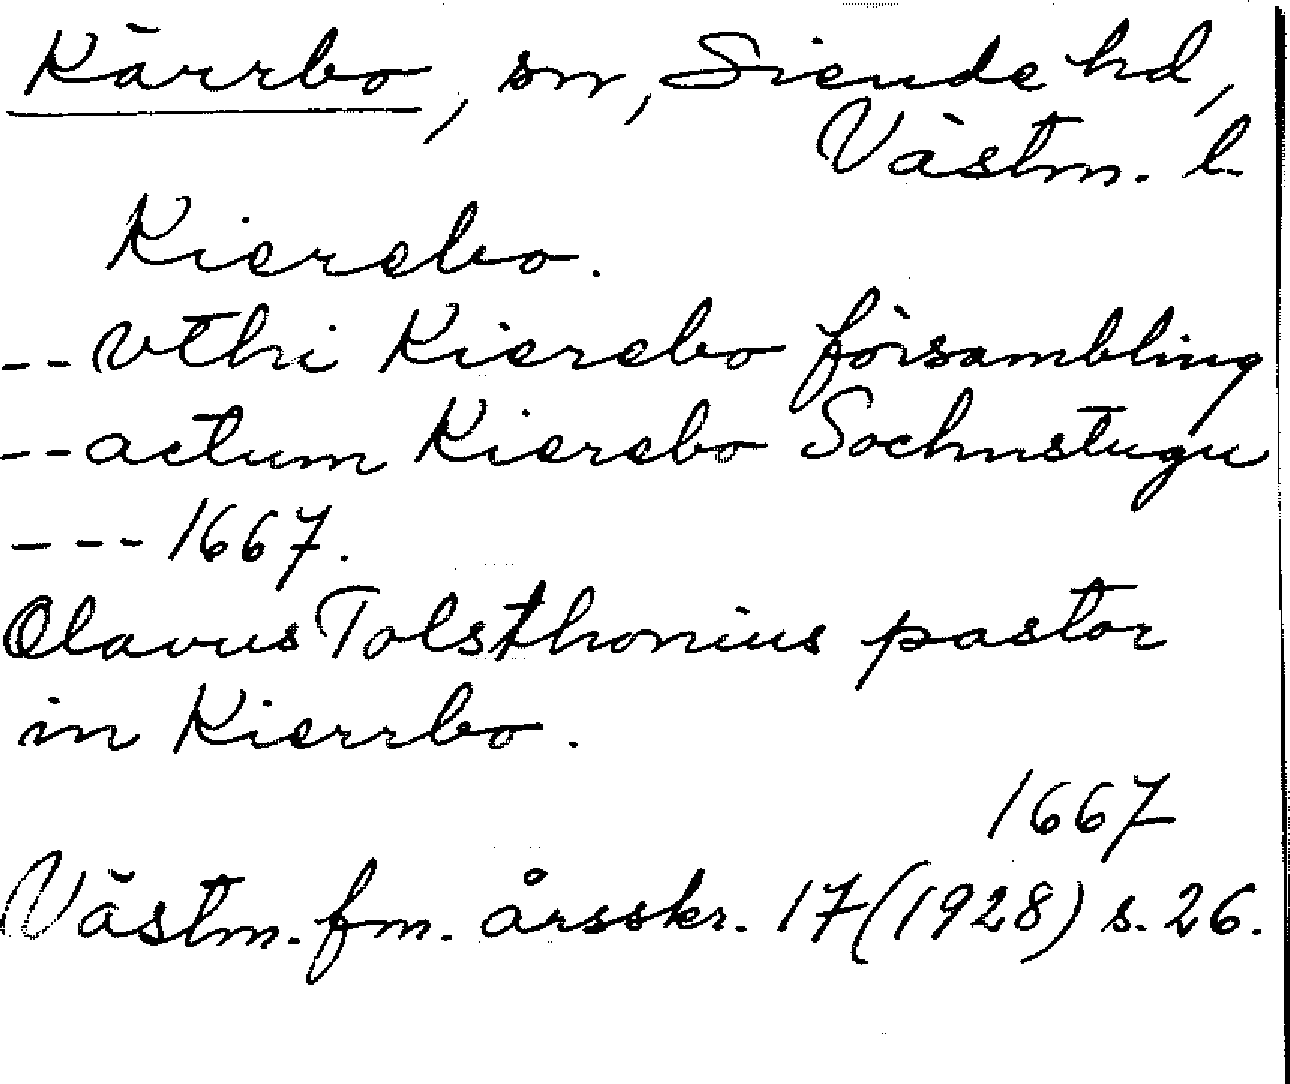 Kärrbo, sn, Siende hd,
Västm. l.
Kierebo.
-- vthi Kierebo försambling
-- actum Kierebo Sochnstugu
--- 1667.
Olavus Tolsthonius pastor
in Kierrbo.
1667
Västm. fm. årsskr. 17 (1928) s. 26.